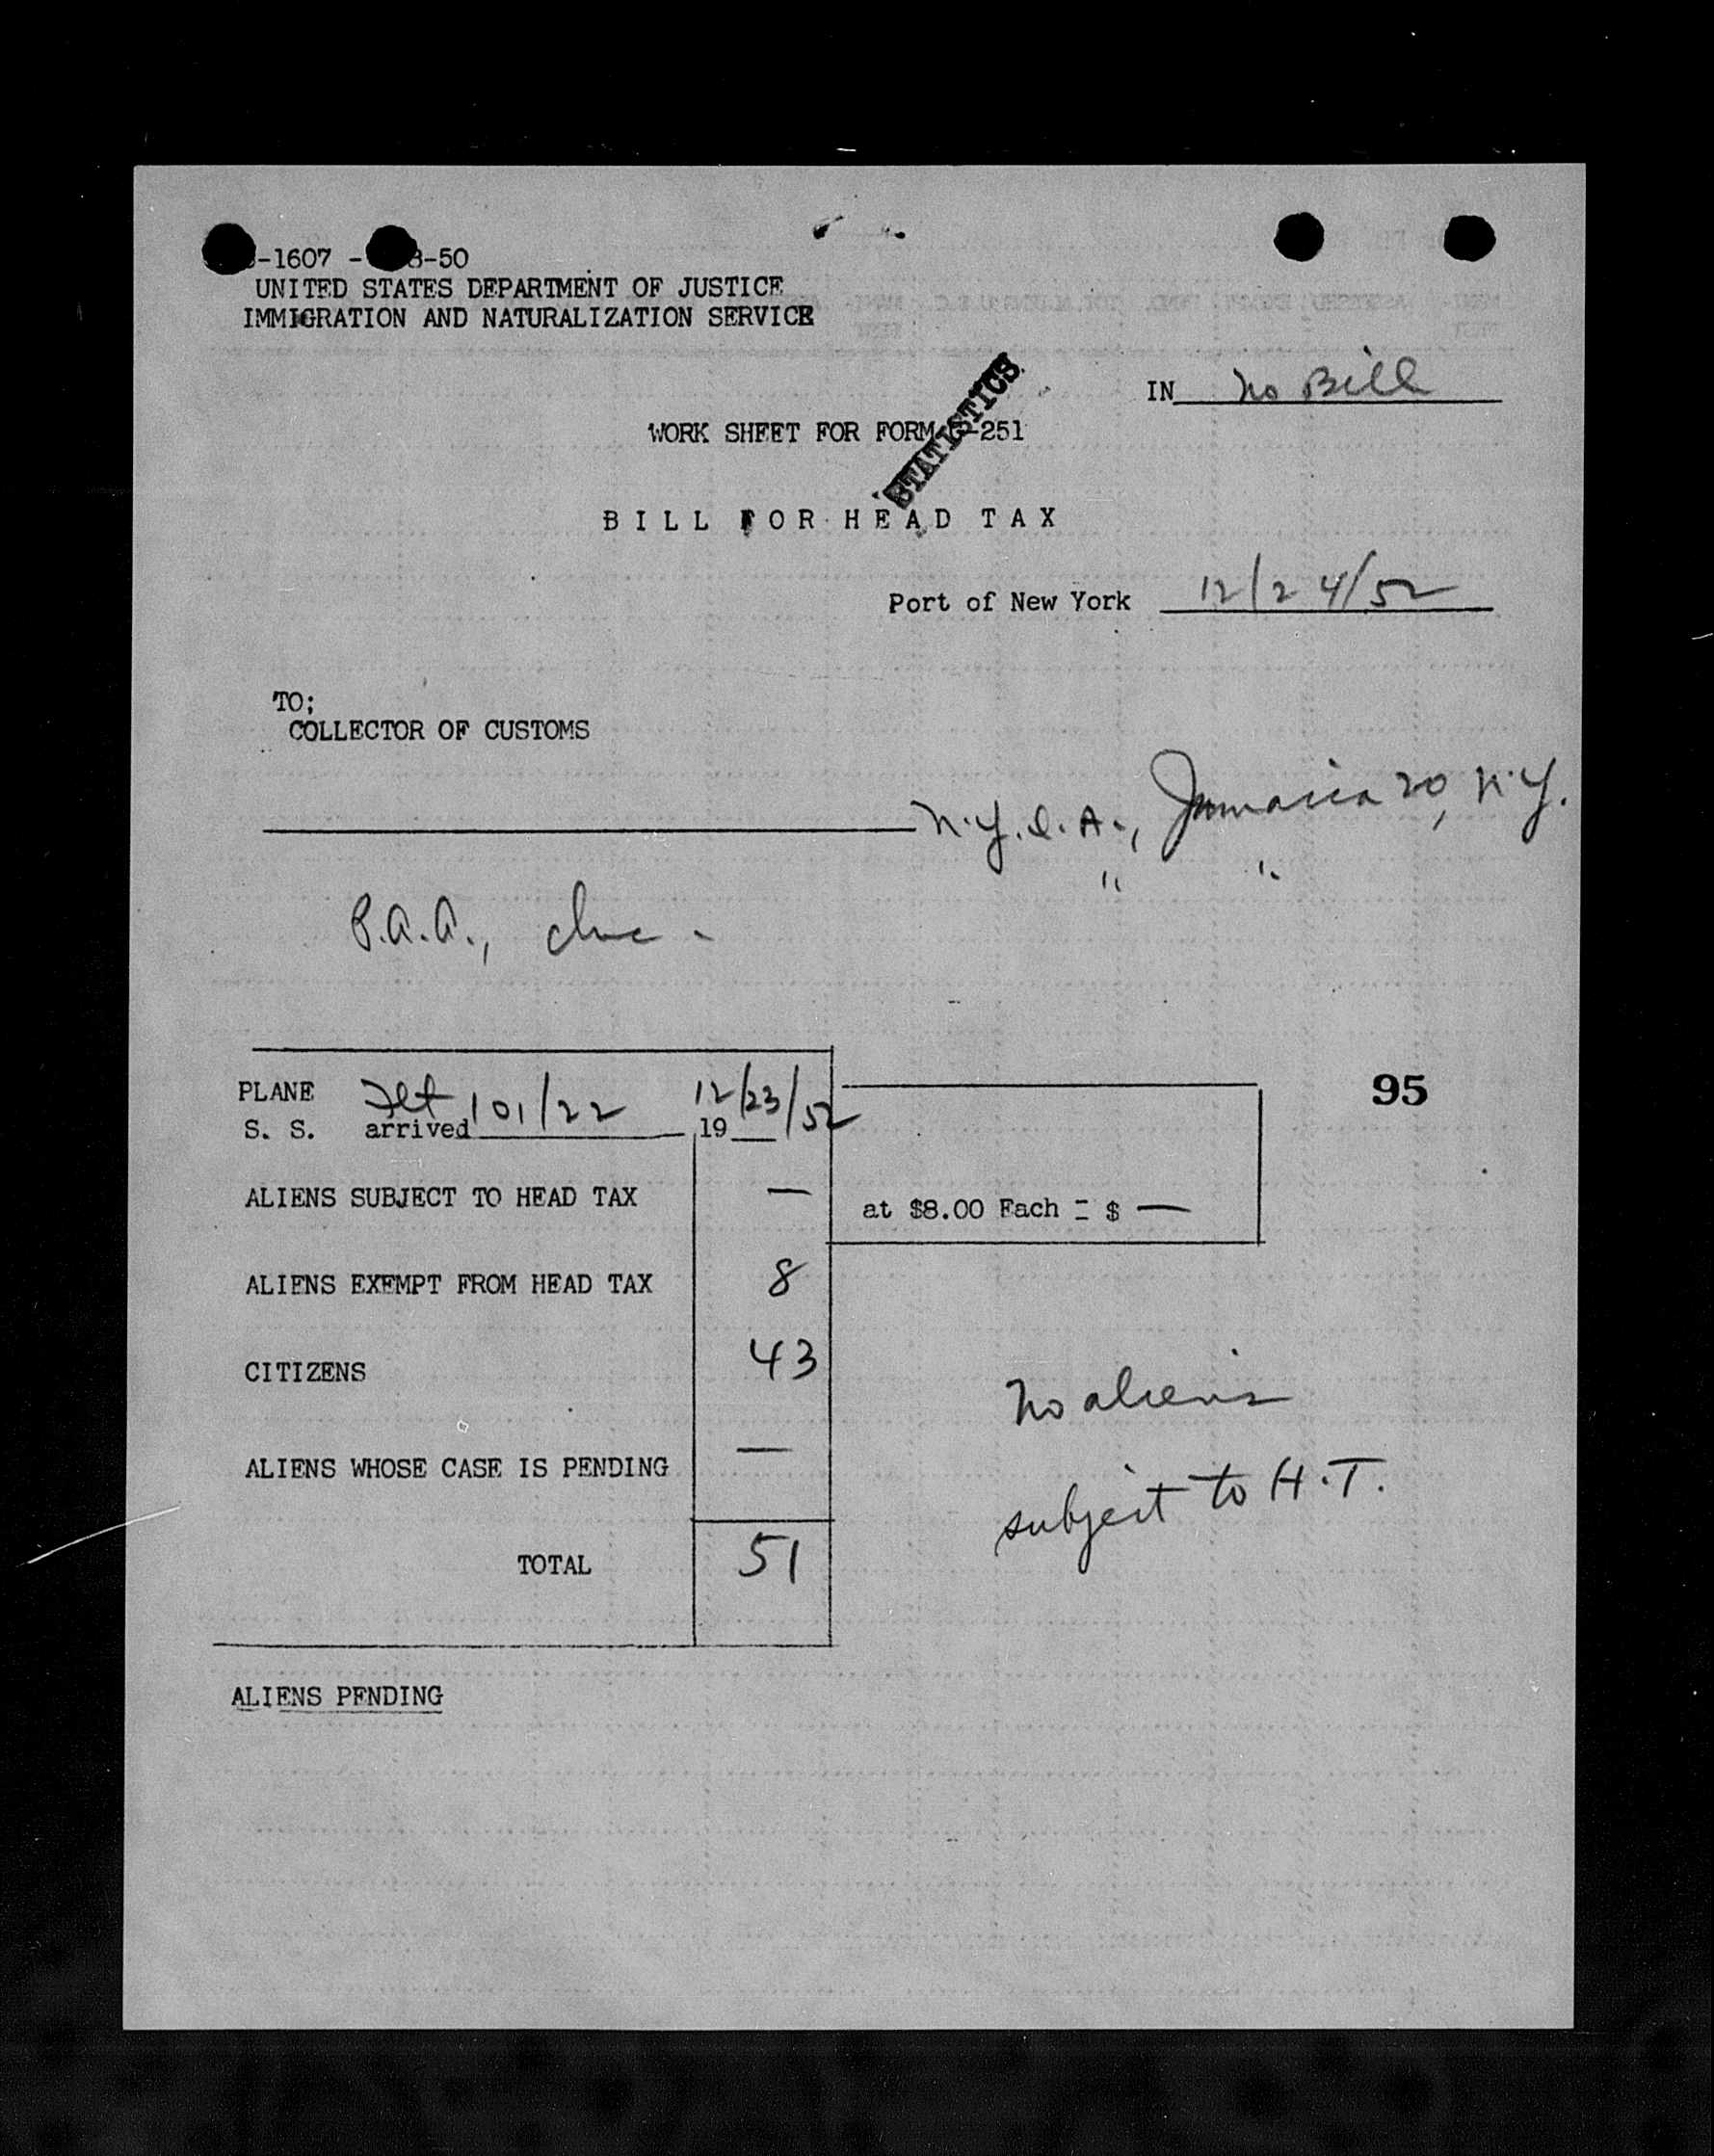 -1607 - 8-50
UNITED STATES DEPARTMENT OF JUSTICE
IMMIGRATION AND NATURALIZATION SERVICE
IN No Bill
STATISTICS
WORK SHEET FOR FORM G-251
BILL FOR HEAD TAX
Port of New York 12/24/52
TO;
COLLECTOR OF CUSTOMS
N.Y.I.A., Jamaica 20, N.Y.
" "
P.A.A., Inc.
95
PLANE Flt 101/22 12/23/52
S. S. arrived 19
ALIENS SUBJECT TO HEAD TAX — at $8.00 Each = $ —
ALIENS EXEMPT FROM HEAD TAX 8
CITIZENS 43
No aliens
ALIENS WHOSE CASE IS PENDING —
subject to H.T.
TOTAL 51
ALIENS PENDING